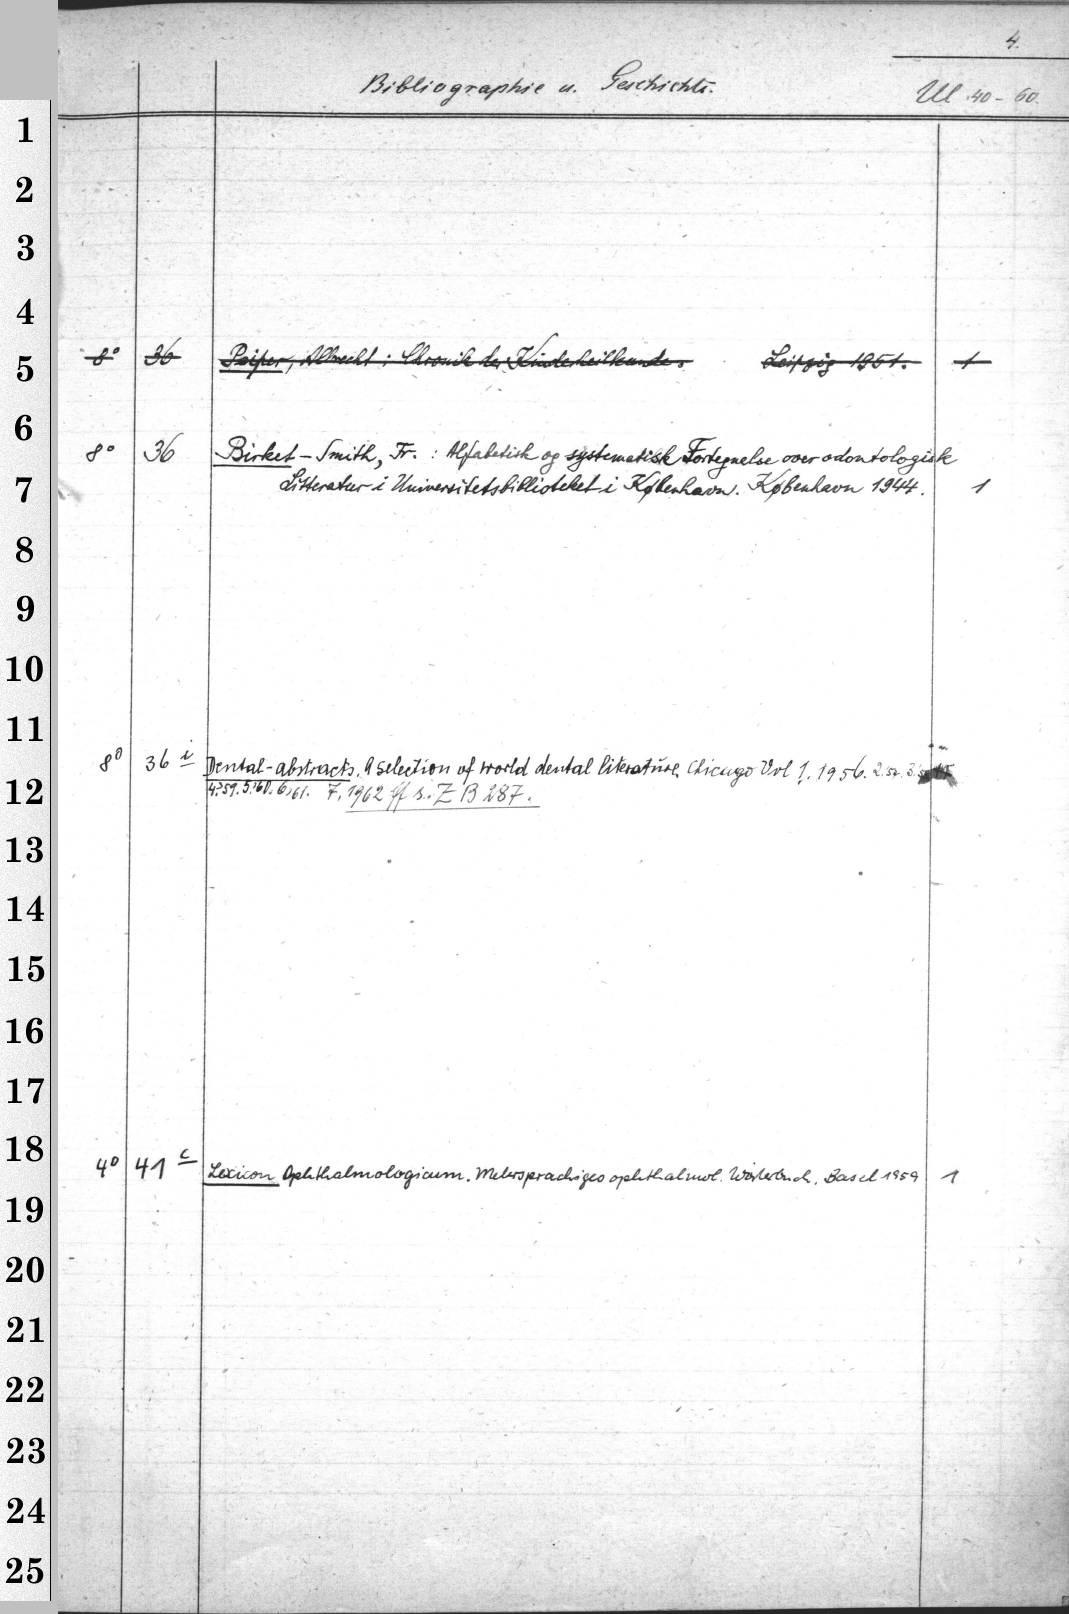 4.
Bibliographie u. Geschichte.
Ul 40-60.
1
2
3
4
8° 36 Peiper, Albrecht: Chronik der Kinderheilkunde. Leipzig 1951. 1
5
6
8° 36 Birket-Smith, Fr.: Alfabetisk og systematisk Fortegnelse over odontologisk
Litteratur i Universitetsbiblioteket i København. København 1944. 1
7
8
9
10
11
8° 36 i Dental-abstracts. A selection of world dental literature. Chicago Vol 1. 1956. 2.57. 3.
4.59. 5.60. 6.61. 7. 1962 ff s. ZB 287.
12
13
14
15
16
17
18
4° 41 c Lexicon Ophthalmologicum. Mehrsprachiges ophthalmol. Wörterbuch. Basel 1959 1
19
20
21
22
23
24
25